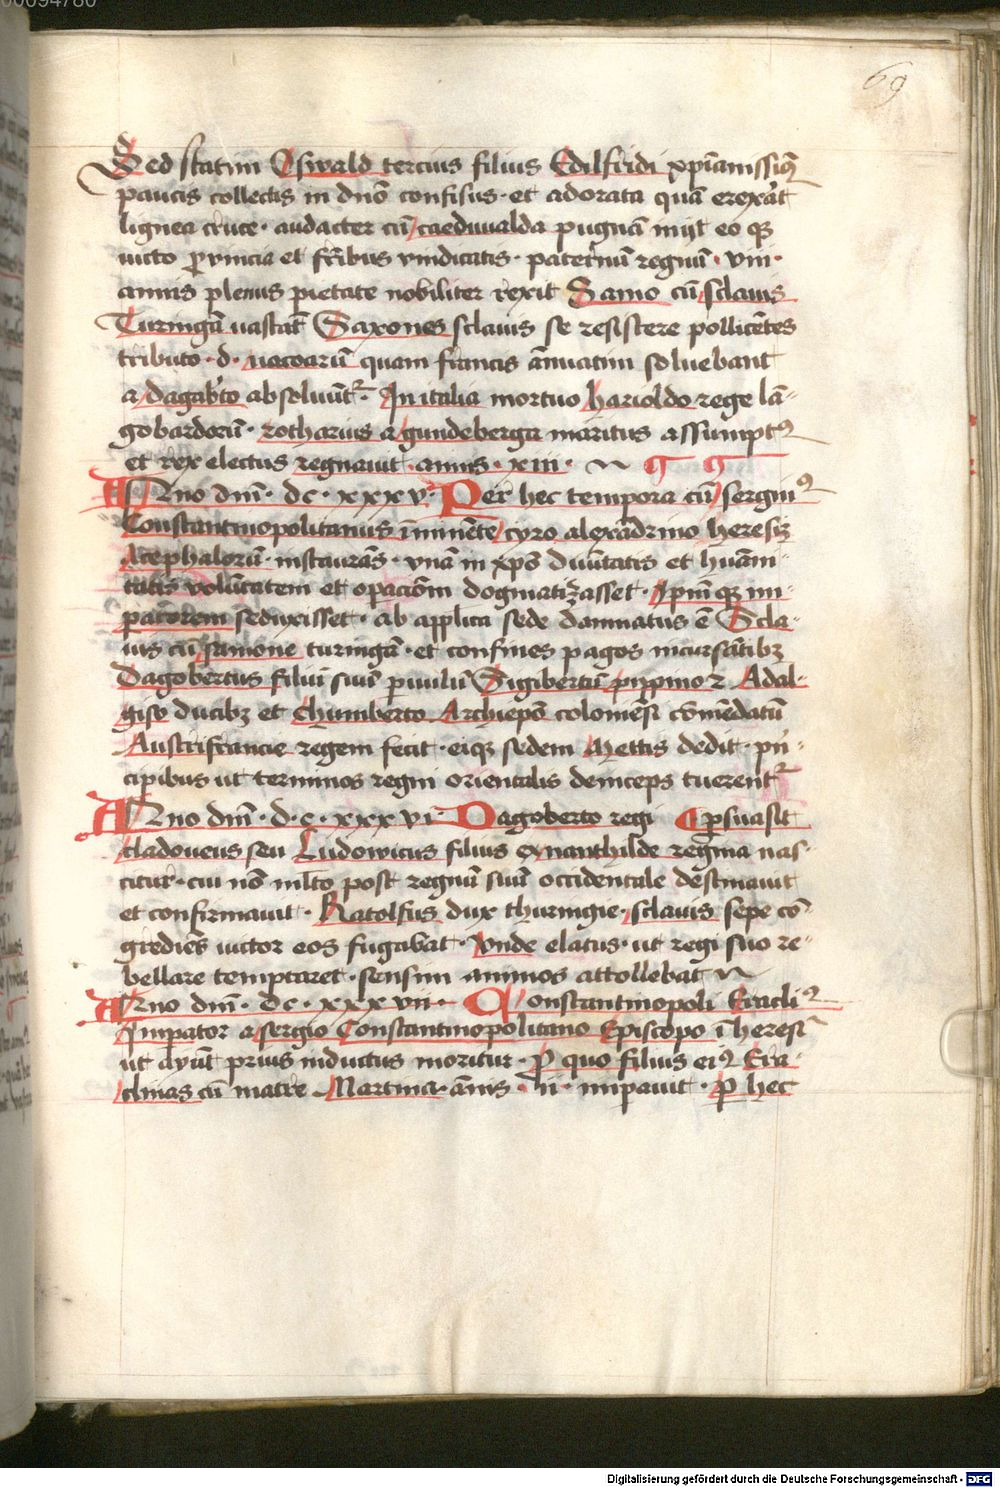 00094780
69
Sed statim Oswald tercius filius Edilfridi xp̄ianissim9
paucis collectis in dnō confisus · et adorata quā erexāt
lignea cruce · audacter cū caeduualda pugnā iniyt eo qz
uicto ꝓuincia et fr̄ibus vindicatis · paternū regnū · viii ·
annis plenus pietate nobiliter rexit Samo cū sclauis
Turingā uastat̄ Saxones sclauis se resistere pollicētes
tributo · d · uaccarū quam francis ānuatim soluebant
a dagab'to absoluūt᷑ · In italia mortuo harioldo rege lā-
gobardorū · rotharius a gundeberga maritus assumpt9
et rex electus regnauit · annis · xiii ·
Anno dnī · dc · xxxv · Per hec tempora cū sergi9
Constantinopolitanus iminēte cyro alexādrino heresiz
Acephalorū · instaurās · vnā in xp̄o diuītatis et huāni-
tatis volūtatem et oꝑaciōm dogmatizasset · Ipm̄ qz im-
patorem seduxisset · ab ap̄plica sede dāmnatus ē Scla-
uis cū samone turingā · et confines pagos incursātibz
Dagobertus filiū suū ꝑuulū Sigibertū pippino ⁊ Adal-
giso ducibz et Chumberto Archiepō coloniēsi cōmēdatū
Austrifrancie regem fecit · eiqz sedem Mettis dedit · p̄n-
cipibus ut terminos regni orientalis deinceps tuerent᷑
Anno dnī · d · c · xxxvi Dagoberto regi ¶ ꝑsuasit
cladoueus seu Ludowicus filius ex nanthilde regīna nas-
citur · cui nō ml̄to post regnū suū occidentale dēstinauit
et confirmauit · Ratolfus dux thuringie sclauis sepe cō-
grediēs uictor eos fugabat · Vnde elatus · ut regi suo re-
bellare temptaret · sensim animos attollebat
Anno dnī · dc · xxxvii · Constantinopoli Eracli9
Imꝑator a sergio Constantinopolitano Episcopo ī heresī
ut ayūt prius inductus moritur · ꝓ quo filius ei9 Era-
clinas cū matre Martina · ānis · ii · imꝑauit · ꝑ hec
Digitalisierung gefördert durch die Deutsche Forschungsgemeinschaft - DFG